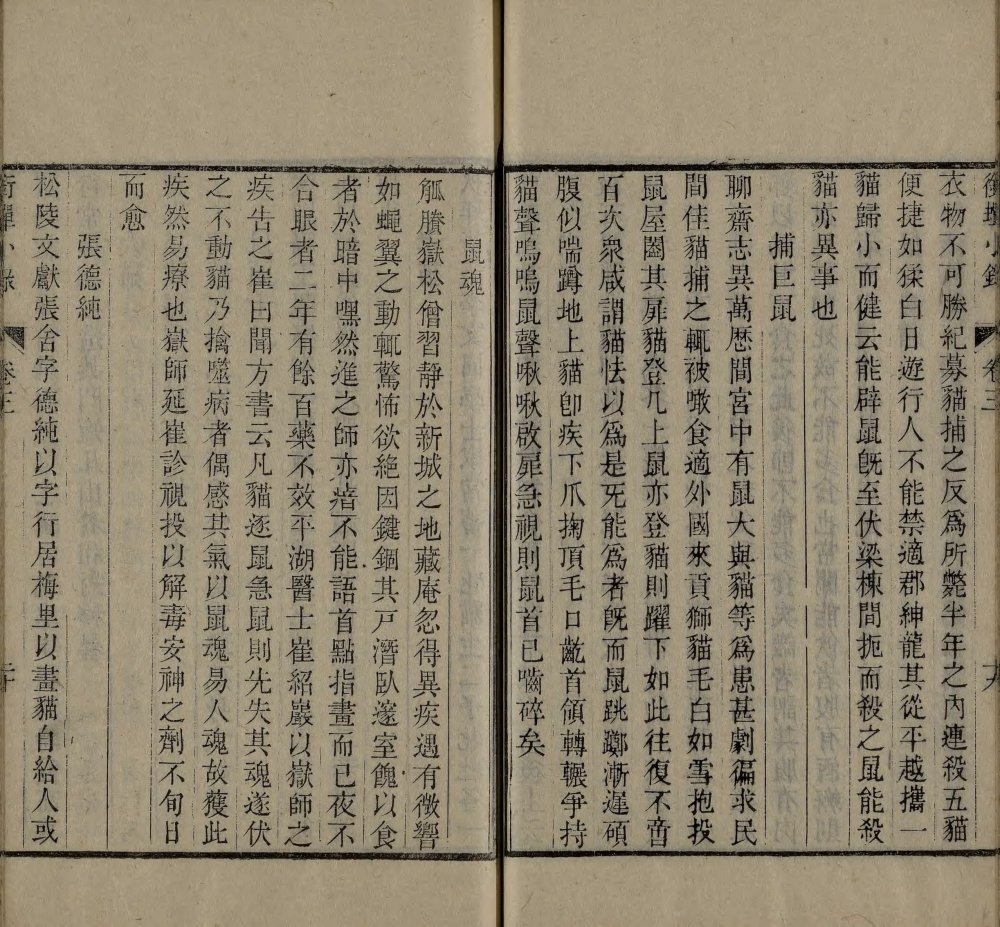 銜蟬小錄 卷三 十九
衣物不可勝紀募貓捕之反爲所斃半年之內連殺五貓
便捷如猱白日遊行人不能禁適郡紳龍其從平越攜一
貓歸小而健云能辟鼠旣至伏梁棟間扼而殺之鼠能殺
貓亦異事也
捕巨鼠
聊齋志異萬歷間宮中有鼠大與貓等爲患甚劇徧求民
間佳貓捕之輒被噉食適外國來貢獅貓毛白如雪抱投
鼠屋闔其扉貓登几上鼠亦登貓則躍下如此往復不啻
百次衆咸謂貓怯以爲是旡能爲者旣而鼠跳躑漸遲碩
腹似喘蹲地上貓卽疾下爪掬頂毛口齕首領轉輾爭持
貓聲嗚嗚鼠聲啾啾啟扉急視則鼠首已嚙碎矣
鼠魂
觚賸嶽松僧習靜於新城之地藏庵忽得異疾遇有微響
如蠅翼之動輒驚怖欲絕因鍵錮其戸潛臥邃室餽以食
者於暗中嘿然進之師亦瘖不能語首點指畫而已夜不
合眼者二年有餘百藥不效平湖醫士崔紹巖以嶽師之
疾告之崔曰聞方書云凡貓逐鼠急鼠則先失其魂遂伏
之不動貓乃擒噬病者偶感其氣以鼠魂易人魂故蒦此
疾然易療也嶽師延崔診視投以解毒安神之劑不旬日
而愈
張德純
松陵文獻張舍字德純以字行居梅里以畫貓自給人或
銜蟬小錄 卷三 二十